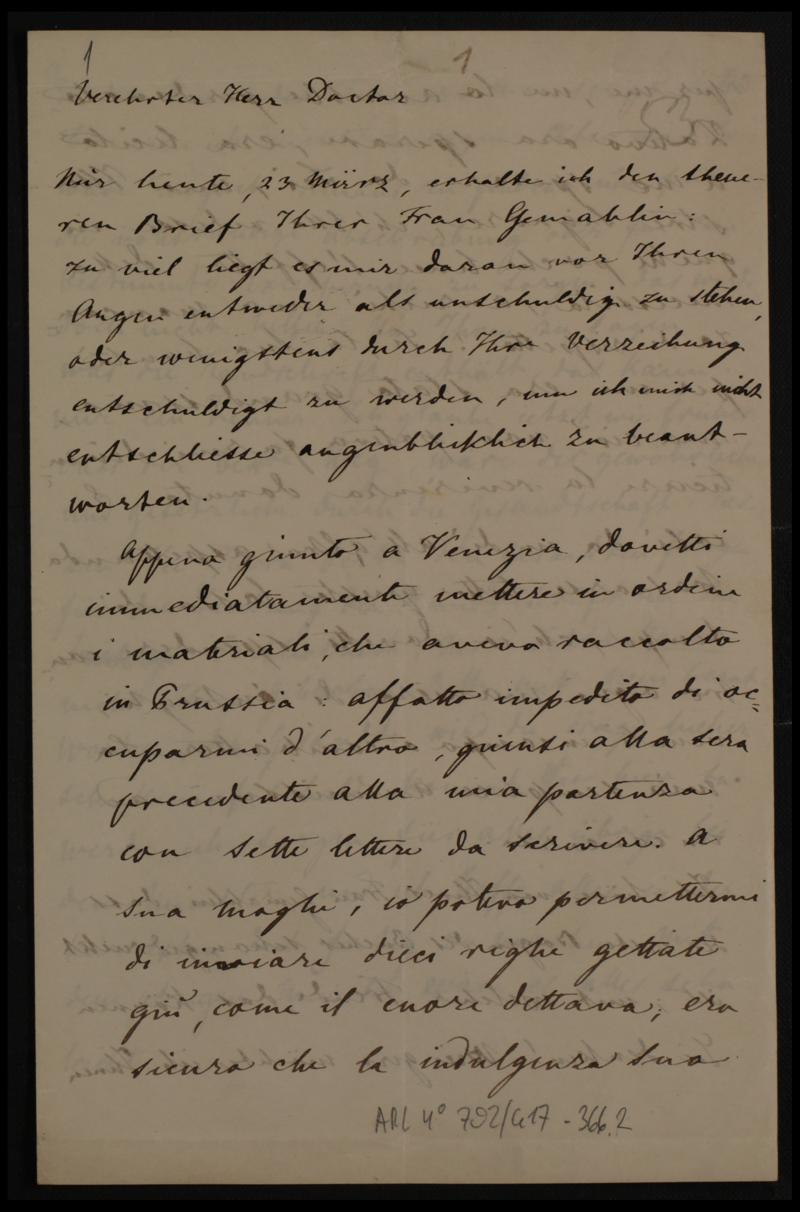 1 1
Verehrter Herr Doctor
Nur heute, 23 März, erhalte ich den theue-
ren Brief Ihrer Frau Gemahlin:
zu viel liegt es mir daran vor Ihren
Augen entweder als unschuldig zu stehen,
oder wenigstens durch Ihre Verzeihung
entschuldigt zu werden, um ich mich nicht
entschliesse augenblicklich zu beant-
worten.
Appena giunto a Venezia, dovetti
immediatamente mettere in ordine
i materiali, che aveva raccolto
in Prussia: affatto impedito di oc=
cuparmi d'altro, giunsi alla sera
precedente alla mia partenza
con sette lettere da scrivere. A
sua moglie, io poteva permettermi
di inviare dieci righe gettate
giù, come il cuore dettava; era
sicuro che la indulgenza sua
ARC 4° 792/G17 - 366.2